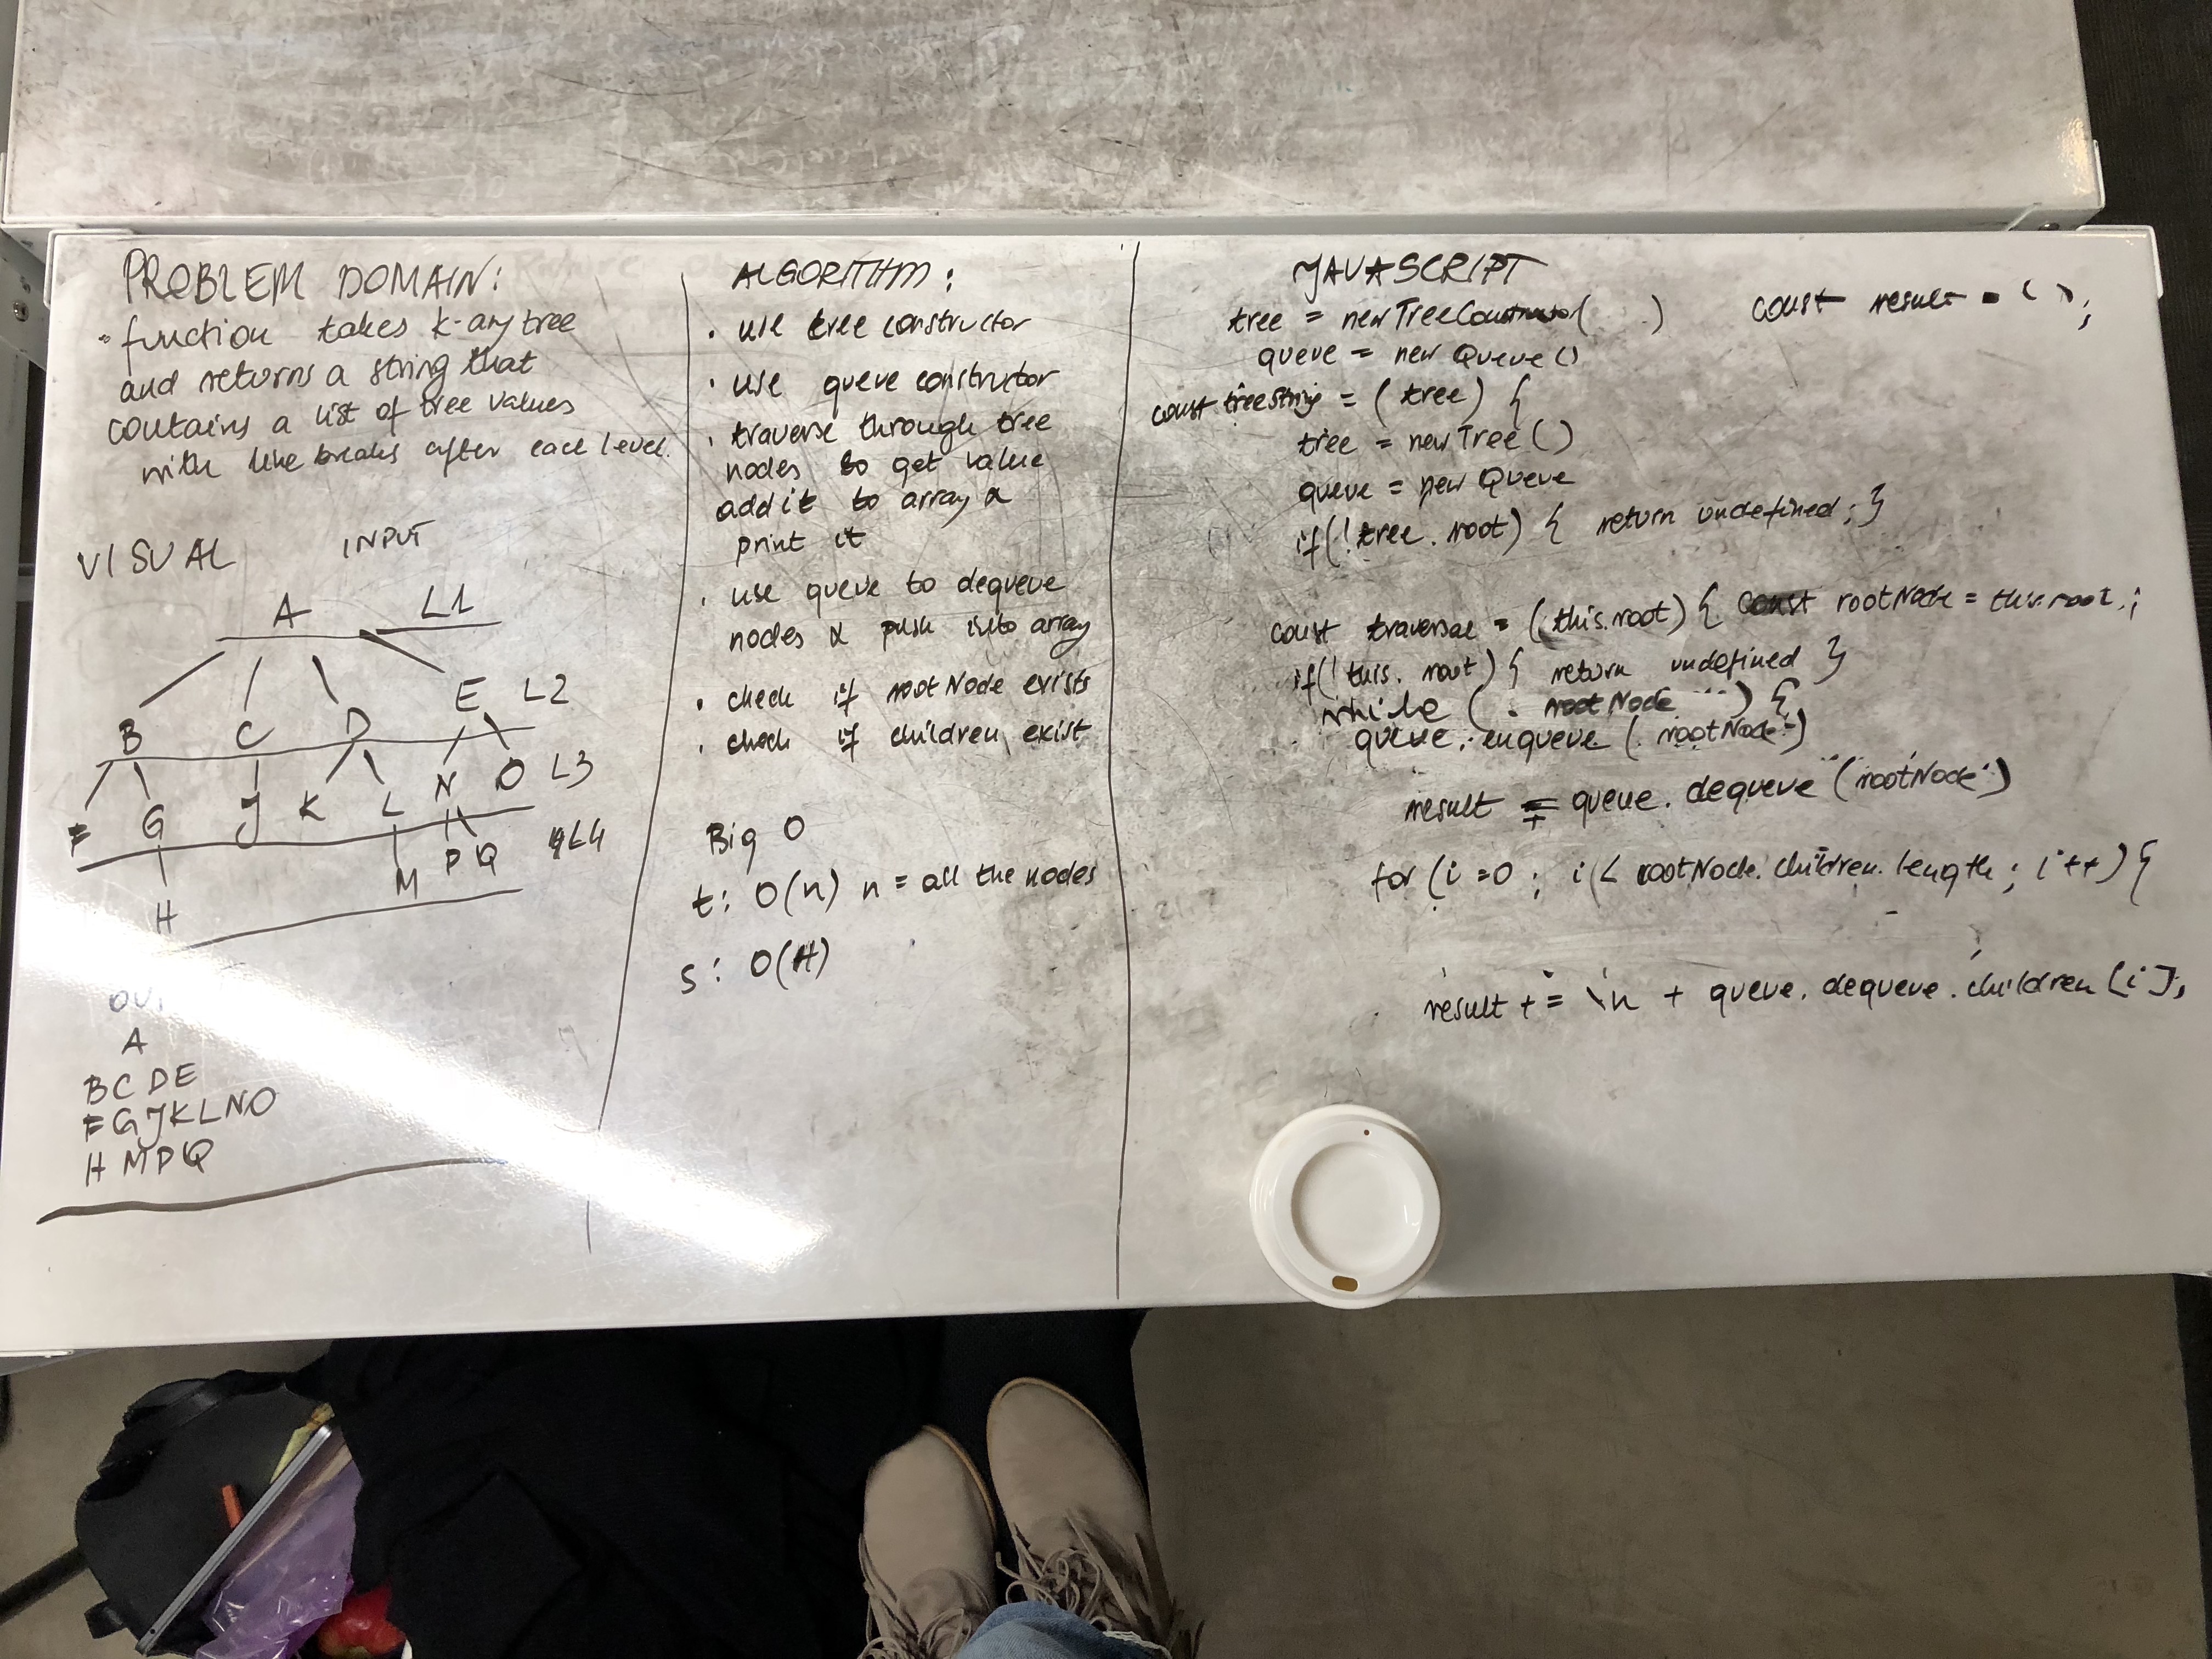 PROBLEM DOMAIN:
• function takes k-ary tree
and returns a string that
contains a list of tree values
with line breaks after each level.
VISUAL INPUT
A L1
B C D E L2
F G J K L N O L3
H M P Q L4
A
B C D E
F G J K L N O
H M P Q
ALGORITHM:
• use tree constructor
• use queue constructor
• traverse through tree
nodes to get value
add it to array &
print it
• use queue to dequeue
nodes & push into array
• check if rootNode exists
• check if children exist
Big O
t: O(n) n = all the nodes
s: O(H)
JAVASCRIPT
tree = new TreeConstructor( ) const result = ( );
queue = new Queue()
const treeString = (tree) {
tree = new Tree()
queue = new Queue
if(!tree.root) { return undefined; }
const traversal = (this.root) { const rootNode = this.root;
if(!this.root) { return undefined }
while ( rootNode ) {
queue.enqueue(rootNode)
result += queue.dequeue(rootNode)
for (i=0; i < rootNode.children.length; i++) {
result += \n + queue.dequeue.children[i];